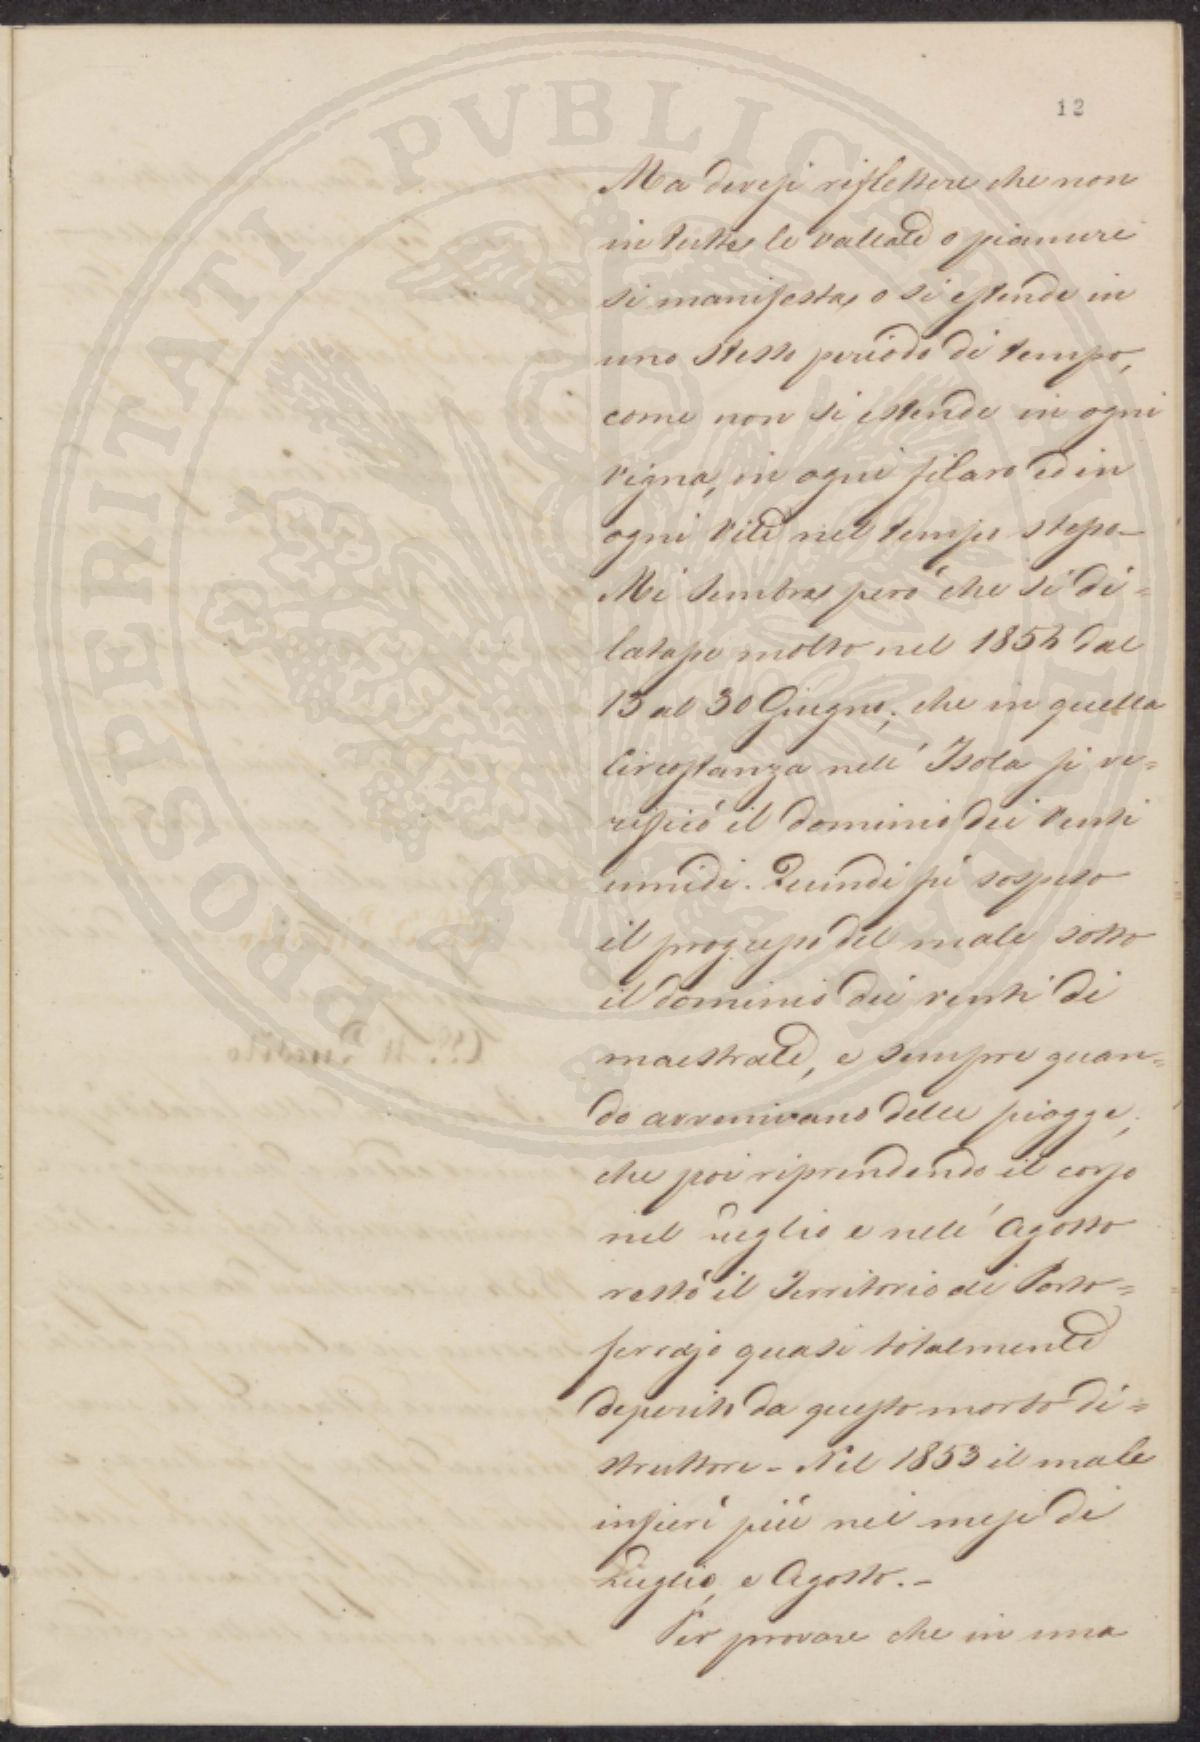 12
Ma devesi riflettere che non
in tutte le vallate o pianure
si manifesta, o si estende in
uno stesso periodo di tempo,
come non si estende in ogni
vigna, in ogni filaro ed in
ogni vite nel tempo stesso –
Mi sembra però che si di =
latasse molto nel 1852 dal
15 al 30 Giugno; che in quella
circostanza nell' Isola si ve =
rificò il dominio dei venti
umidi. Quindi fù sospeso
il progresso del male sotto
il dominio dei venti di
maestrale, e sempre quan =
do avvenivano delle piogge;
che poi riprendendo il corso
nel Luglio e nell' Agosto
restò il Territorio di Porto =
ferrajo quasi totalmente
deperito da questo morbo di =
struttore – Nel 1853 il male
infierì più nei mesi di
Luglio, e Agosto. –
Per provare che in una
PROSPERITATI PVBLICAE